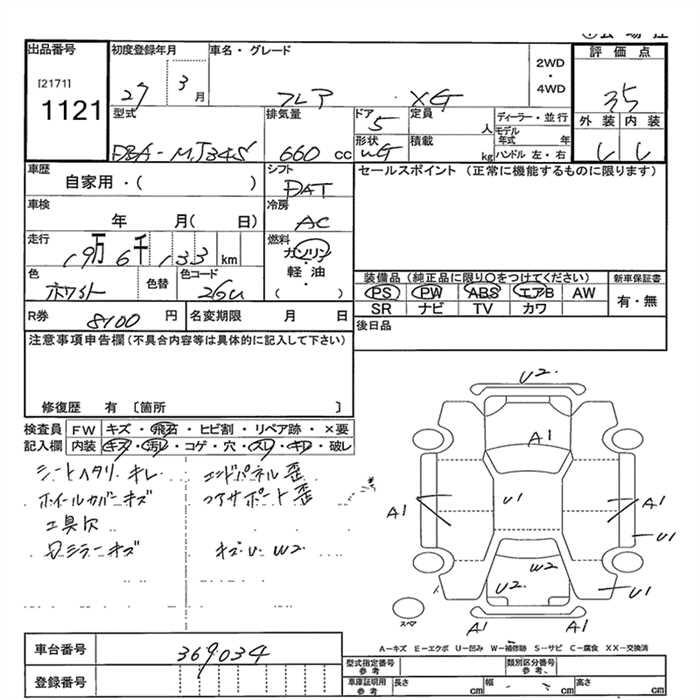 出品番号
[2171]
1121
初度登録年月
27
3
月
車名・グレード
フレア XG
2WD
・
4WD
評価点
35
外装 内装
型式
DBA-MJ34S
排気量
660 cc
ドア
5
形状
定員
人
積載
kg
ディーラー・並行
モデル
年式
年
ハンドル 左・右
車歴
自家用・( )
シフト
DAT
セールスポイント (正常に機能するものに限ります)
車検
年 月( 日)
冷房
AC
走行
19万6千133 km
燃料
ガソリン
軽・油
( )
色
ホワイト
色替
色コード
26U
装備品 (純正品に限り〇をつけてください)
新車保証書
PS PW ABS エアB AW
SR ナビ TV カワ
有・無
R券
8100 円
名変期限 月 日
後日品
注意事項申告欄 (不具合内容等は具体的に記入して下さい)
修復歴 有 〔箇所 〕
検査員
記入欄
FW キズ・飛石・ヒビ割・リペア跡・×要
内装 キズ・汚れ・コゲ・穴・スレ・キレ・破レ
シートヘタリ キレ
ホイールカバーキズ
工具欠
ミラーキズ
エンドパネル歪
コアサポート歪
キズU W2
U2
A1
U1
A1
A1
U1
W2
U2
U1
A1
A1
スペア
A-キズ E-エクボ U-凹み W-補修跡 S-サビ C-腐食 XX-交換済
車台番号
369034
登録番号
型式指定番号
参考
類別区分番号
参考
車庫証明用
参考
長さ
cm
幅
cm
高さ
cm